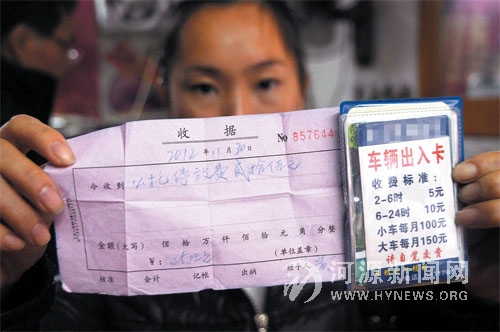 收据
No B57644
2012年11月30日
今收到 停放费贰拾伍元
金额(大写) 佰 拾 万 仟 佰 拾 元 角 分整
¥: (单位盖章)
核准 会计 记帐 出纳 经手人
车辆出入卡
收费标准:
2-6时 5元
6-24时 10元
小车每月100元
大车每月150元
请自觉交费
河源新闻网
WWW.HYNEWS.ORG